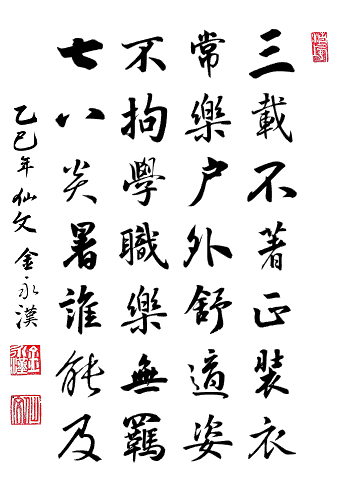 三載不著正裝衣
常樂戶外舒適姿
不拘學職樂無羈
七八炎暑誰能及
乙巳年 仙文 金永漢